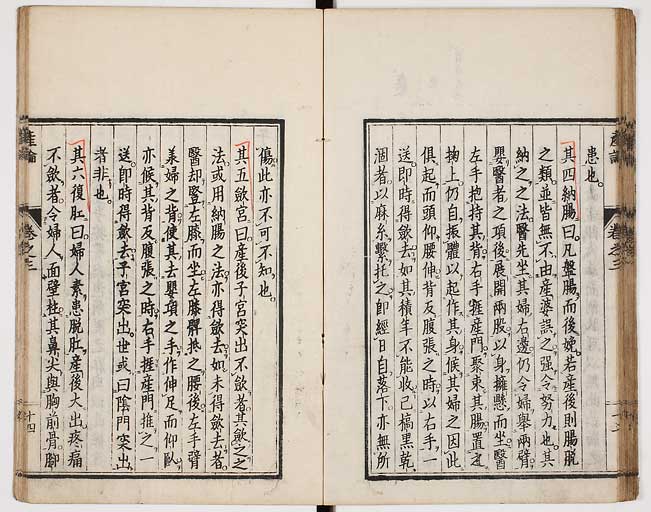 患也。
其四納腸曰凡盤腸而後娩若産後則腸脱
之類並皆無不由産婆誤之强令努力也其
納之之法醫先坐其婦右邊仍令婦擧兩臂
嬰醫者之項後展開兩股以身擁懸而坐醫
左手抱持其背右手摧産門聚束其腸置定
掬上仍自振體以起作其身候其婦之因此
俱起而頭仰腰伸背反腹張之時以右手一
送即時得斂去如其積年不能收已槁黒乾
涸者以麻糸繫托之即經日自落下亦無所
傷此亦不可不知也
其五斂宮曰産後子宮突出不斂者其斂之之
法或用納腸之法亦得斂去如未得斂去者
醫却竪左膝而坐左膝髀抵之腰後左手臂
羕婦之背使其去嬰項之手作伸足而仰臥
亦候其背反腹張之時右手摧産門推之一
送即時得斂去子宮突出世或曰陰門突出
者非也
其六復肛曰婦人素患脱肛産後大出疼痛
不斂者令婦人面壁柱其鼻尖與胸前骨脚
産論
卷之三
十四
産論
卷之三